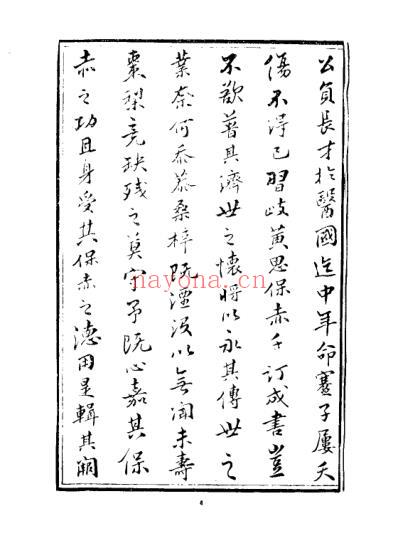 公負長才於醫國迄中年命蹇子屢夭
傷不得已習歧黃思保赤手訂成書豈
不欲普其濟世之懷將以永其傳世之
業奈何恭桑梓既湮没以無聞未壽
棗梨竟缺残之莫守予既心嘉其保
赤之功且身受其保赤之德因是輯其闕
nayona.cn
4